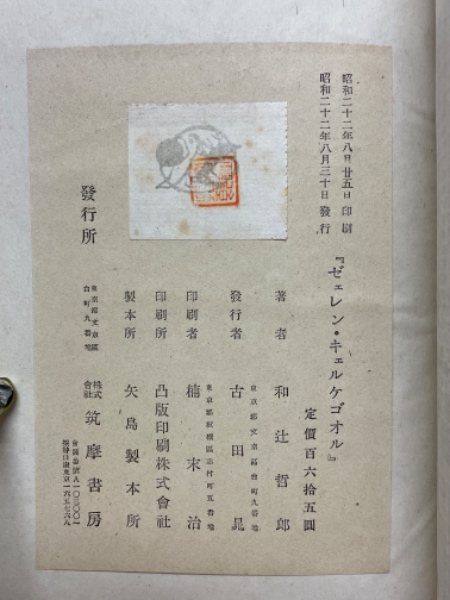 昭和二十二年八月廿五日 印刷
昭和二十二年八月三十日 發行
『ゼェレン・キェルケゴオル』
定價百六拾五圓
著者 和辻哲郎
東京都文京區台町九番地
發行者 古田晁
東京都板橋區志村町五番地
印刷者 楠末治
印刷所 凸版印刷株式會社
製本所 矢島製本所
發行所
東京都文京區
台町九番地
株式會社 筑摩書房